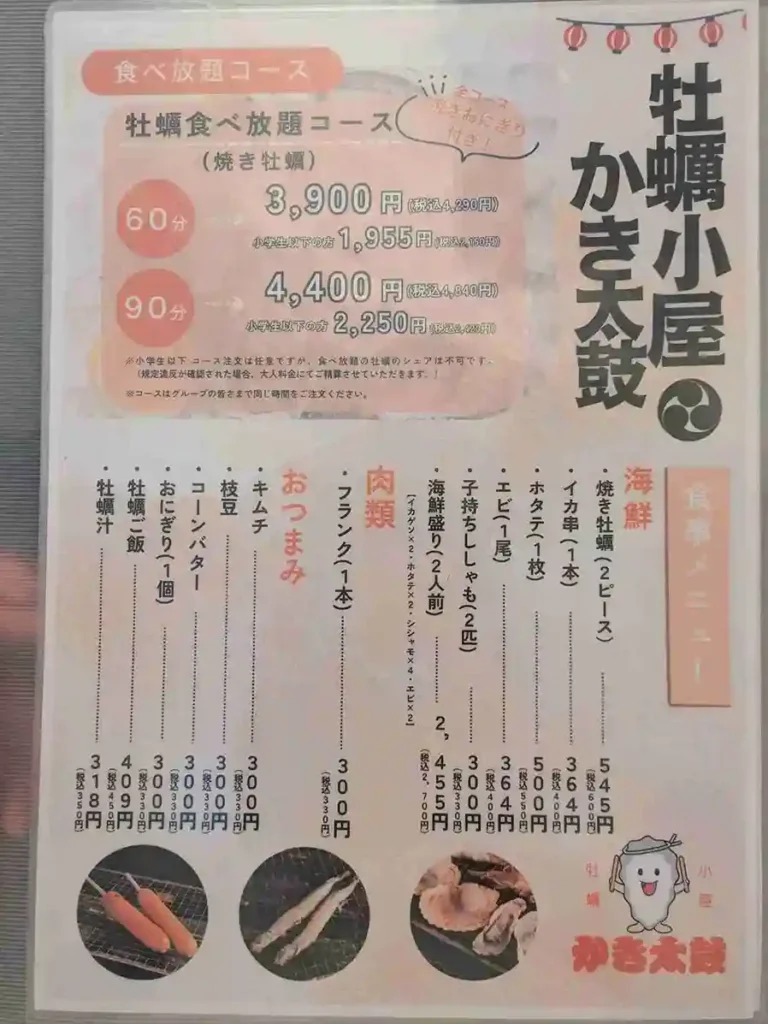 牡蠣小屋
かき太鼓
食べ放題コース
牡蠣食べ放題コース
(焼き牡蠣)
全コース
おにぎり
付き！
60分
3,900円(税込4,290円)
小学生以下の方 1,955円(税込2,150円)
90分
4,400円(税込4,840円)
小学生以下の方 2,250円
※小学生以下 コース注文は任意ですが、食べ放題の牡蠣のシェアは不可です。
(規定違反が確認された場合、大人料金にてご精算させていただきます。)
※コースはグループの皆さまで同じ時間をご注文ください。
食事メニュー
海鮮
・焼き牡蠣(2ピース) 545円(税込600円)
・イカ串(1本) 364円(税込400円)
・ホタテ(1枚) 500円(税込550円)
・エビ(1尾) 364円(税込400円)
・子持ちししゃも(2匹) 300円(税込330円)
・海鮮盛り(2人前) 2,455円(税込2,700円)
【イカゲン×2・ホタテ×2・シシャモ×4・エビ×2】
肉類
・フランク(1本) 300円(税込330円)
おつまみ
・キムチ 300円(税込330円)
・枝豆 300円(税込330円)
・コーンバター 300円(税込330円)
・おにぎり(1個) 300円(税込330円)
・牡蠣ご飯 409円(税込450円)
・牡蠣汁 318円(税込350円)
牡蠣
小屋
かき太鼓